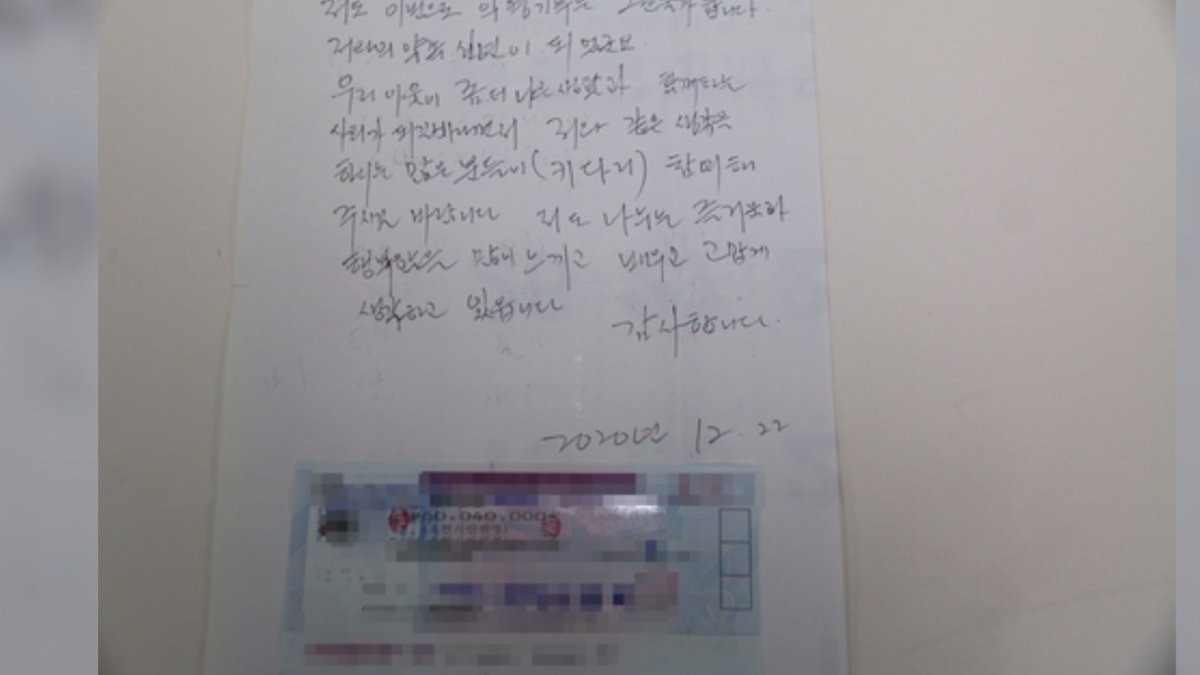 저도 이번으로 익명기부는 그만두려 합니다.
저와의 약속 십년이 되었군요
우리 이웃이 좀 더 나은 생활과 함께하는
사회가 되길바라면서 저와 같은 생각을
하시는 많은 분들이(키다리) 함께해
주시길 바랍니다 저도 나누는 즐거움과
행복함을 많이 느끼고 배우고 고맙게
생각하고 있읍니다
감사합니다.
2020년 12. 22
50.040.000